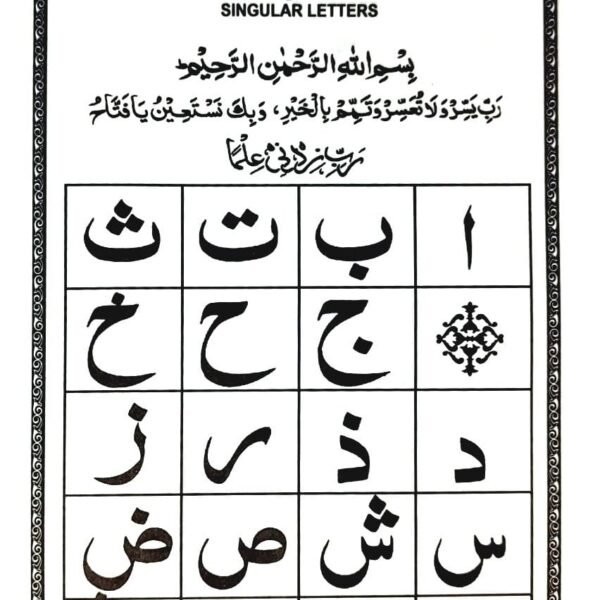 SINGULAR LETTERS
بِسْمِ اللهِ الرَّحْمٰنِ الرَّحِيْمِ
رَبِّ يَسِّرْ وَلَا تُعَسِّرْ وَتَمِّمْ بِالْخَيْرِ، وَبِكَ نَسْتَعِيْنُ يَا فَتَّاحُ
رَبِّ زِدْنِيْ عِلْمًا
ا ب ت ث
ج ح خ
د ذ ر ز
س ش ص ض